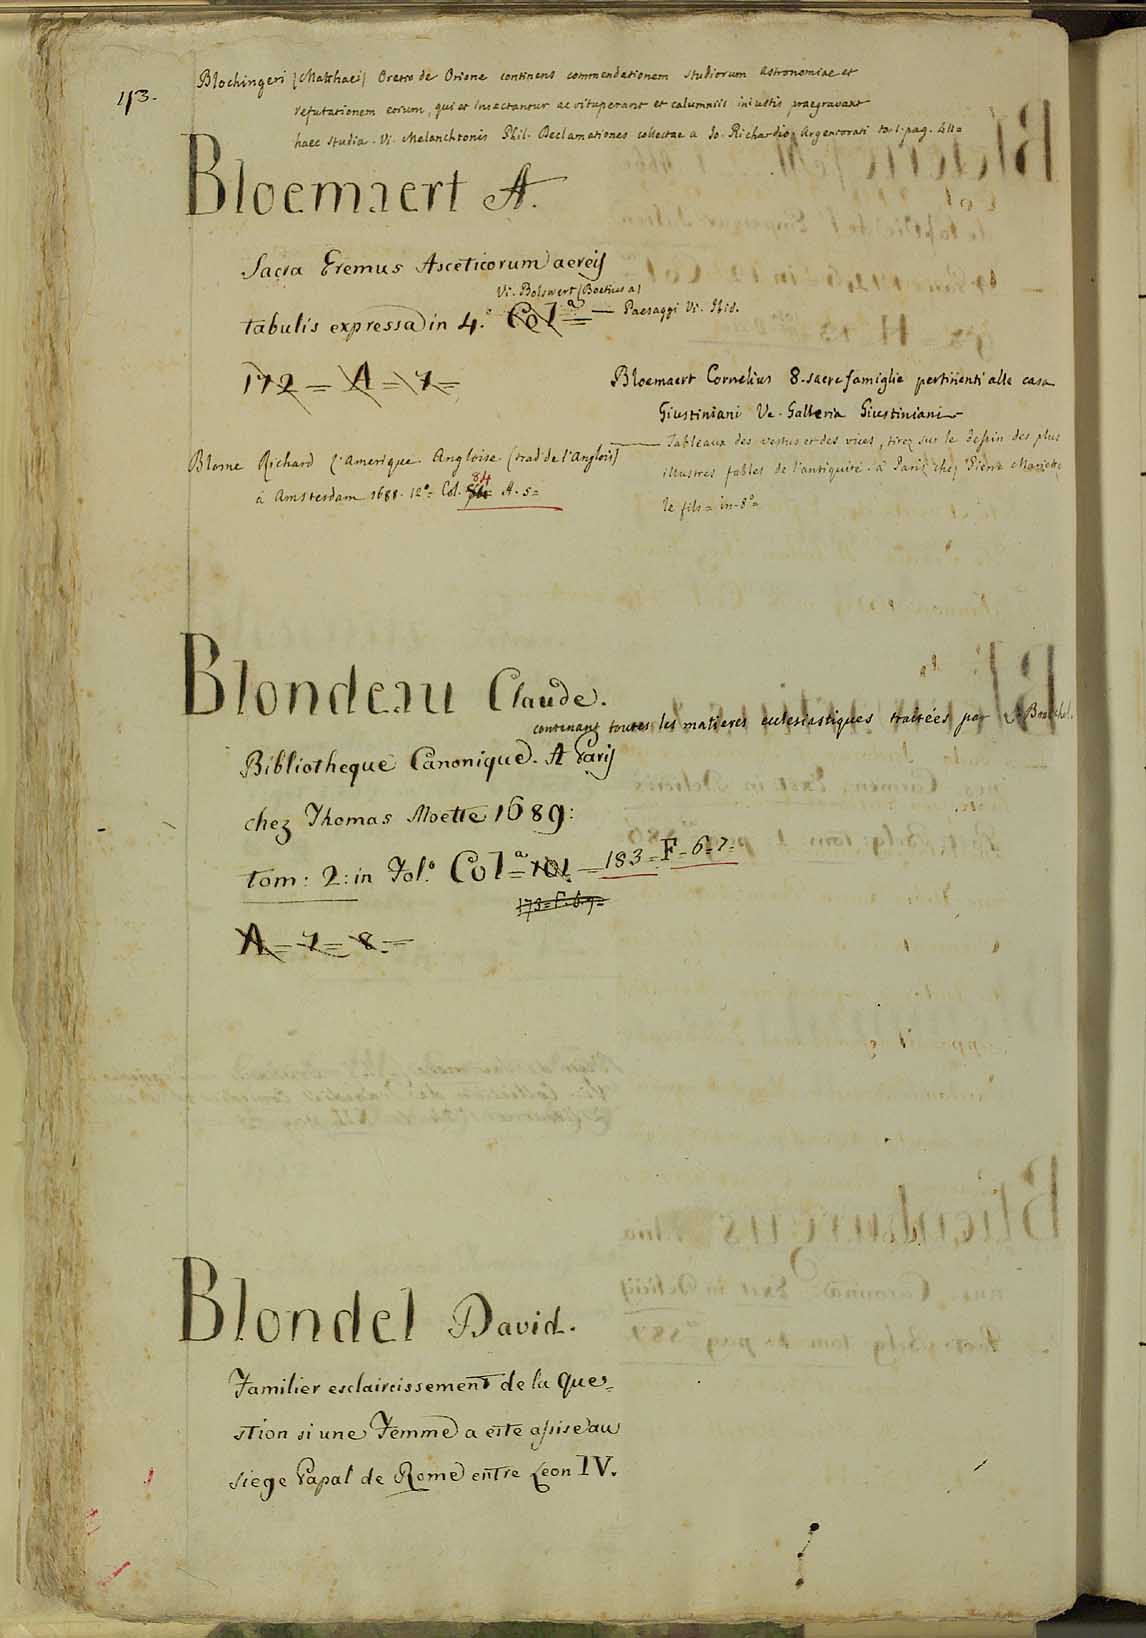 113.
Blochingeri (Matthaei) Oratio de Orione continens commendationem studiorum astronomiae et
refutationem eorum, qui et insectantur ac vituperant et calumniis iniustis praegravant
haec studia. Vi. Melanchtonis Phil. Declamationes collectae a Jo. Richardio, Argentorati to. 1. pag. 411=
Bloemaert A.
Sacra Eremus Asceticorum aereis
Vi. Bolswert (Boetius a)
tabulis expressa in 4.° Col.ª = — Paesaggi Vi. Ibid.
172 = A = 7 =
Bloemaert Cornelius 8. sacre famiglie pertinenti alla casa
Giustiniani Ve. Galleria Giustiniani
— Tableaux des vertus et des vices, tirez sur le dessin des plus
illustres fables de l'antiquité. à Paris chez Pierre Mariette
le fils = in-8°=
Blome Richard l'Amerique Angloise (trad. de l'Anglois)
à Amsterdam 1688. 12°= Col. 84 A. 5=
Blondeau Claude.
contenant toutes les matieres eclesiastiques traitées par
Bibliotheque Canonique. A Paris
chez Thomas Moette 1689:
tom: 2: in Fol.° Col.ª = 101 = 183 = F = 6 = 7 =
173 = F. 6. 7 =
A = 7 = 8 =
Blondel David.
Familier esclaircissement de la Que=
stion si une Femme a este assise au
siege Papal de Rome entre Leon IV.